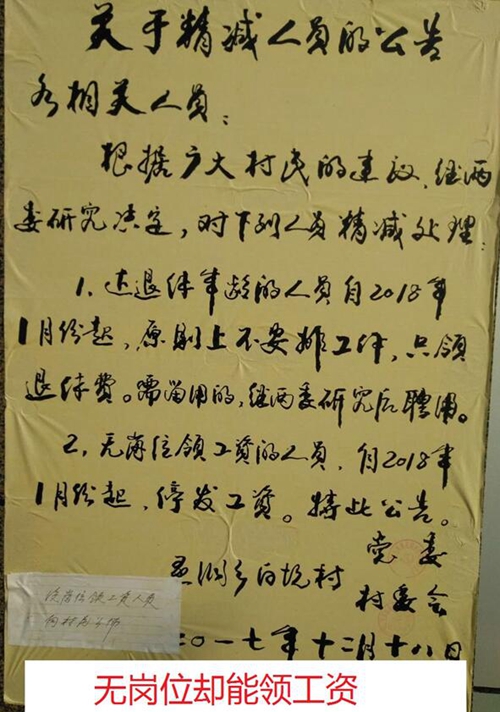 关于精减人员的公告
各相关人员：
根据广大村民的建议，经两
委研究决定，对下列人员精减处理：
1、达退休年龄的人员自2018年
1月份起，原则上不安排工作，只领
退休费。需留用的，经两委研究后聘用。
2、无岗位领工资的人员，自2018年
1月份起，停发工资。特此公告。
党委
村委会
二〇一七年十二月十八日
领工资人员
无岗位却能领工资